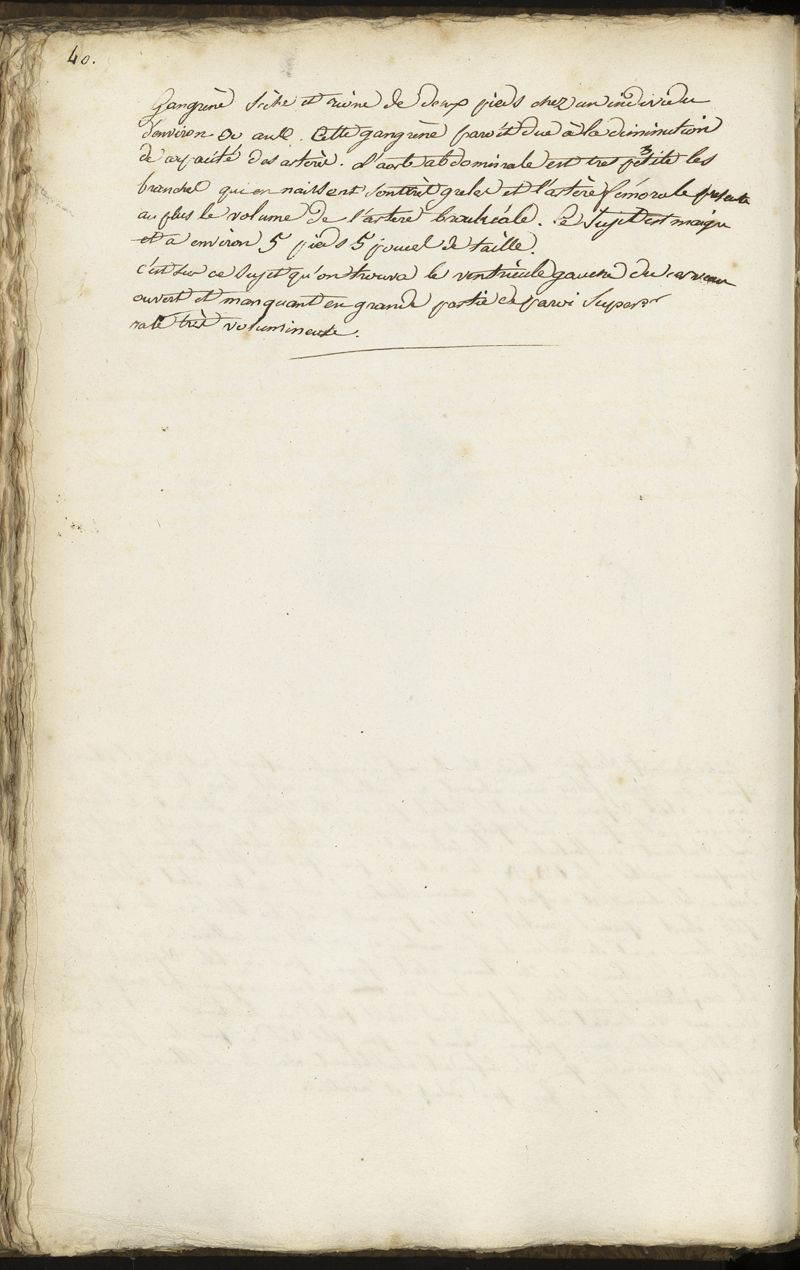 40.
Gangrène sèche et  de deux pieds chez un individu
d'environ  ans. Cette gangrène paroit due à la diminution
de capacité des artères. L'aorte abdominale est très petite les
branches qui en naissent sont très greles et l'artère fémorale
au plus le volume de l'artère brachiale. Le sujet est maigre
et a environ 5 pieds 5 pouces de taille.
c'est sur ce sujet qu'on trouva le ventricule gauche du cerveau
ouvert et manquant en grande partie de paroi
très volumineuse.